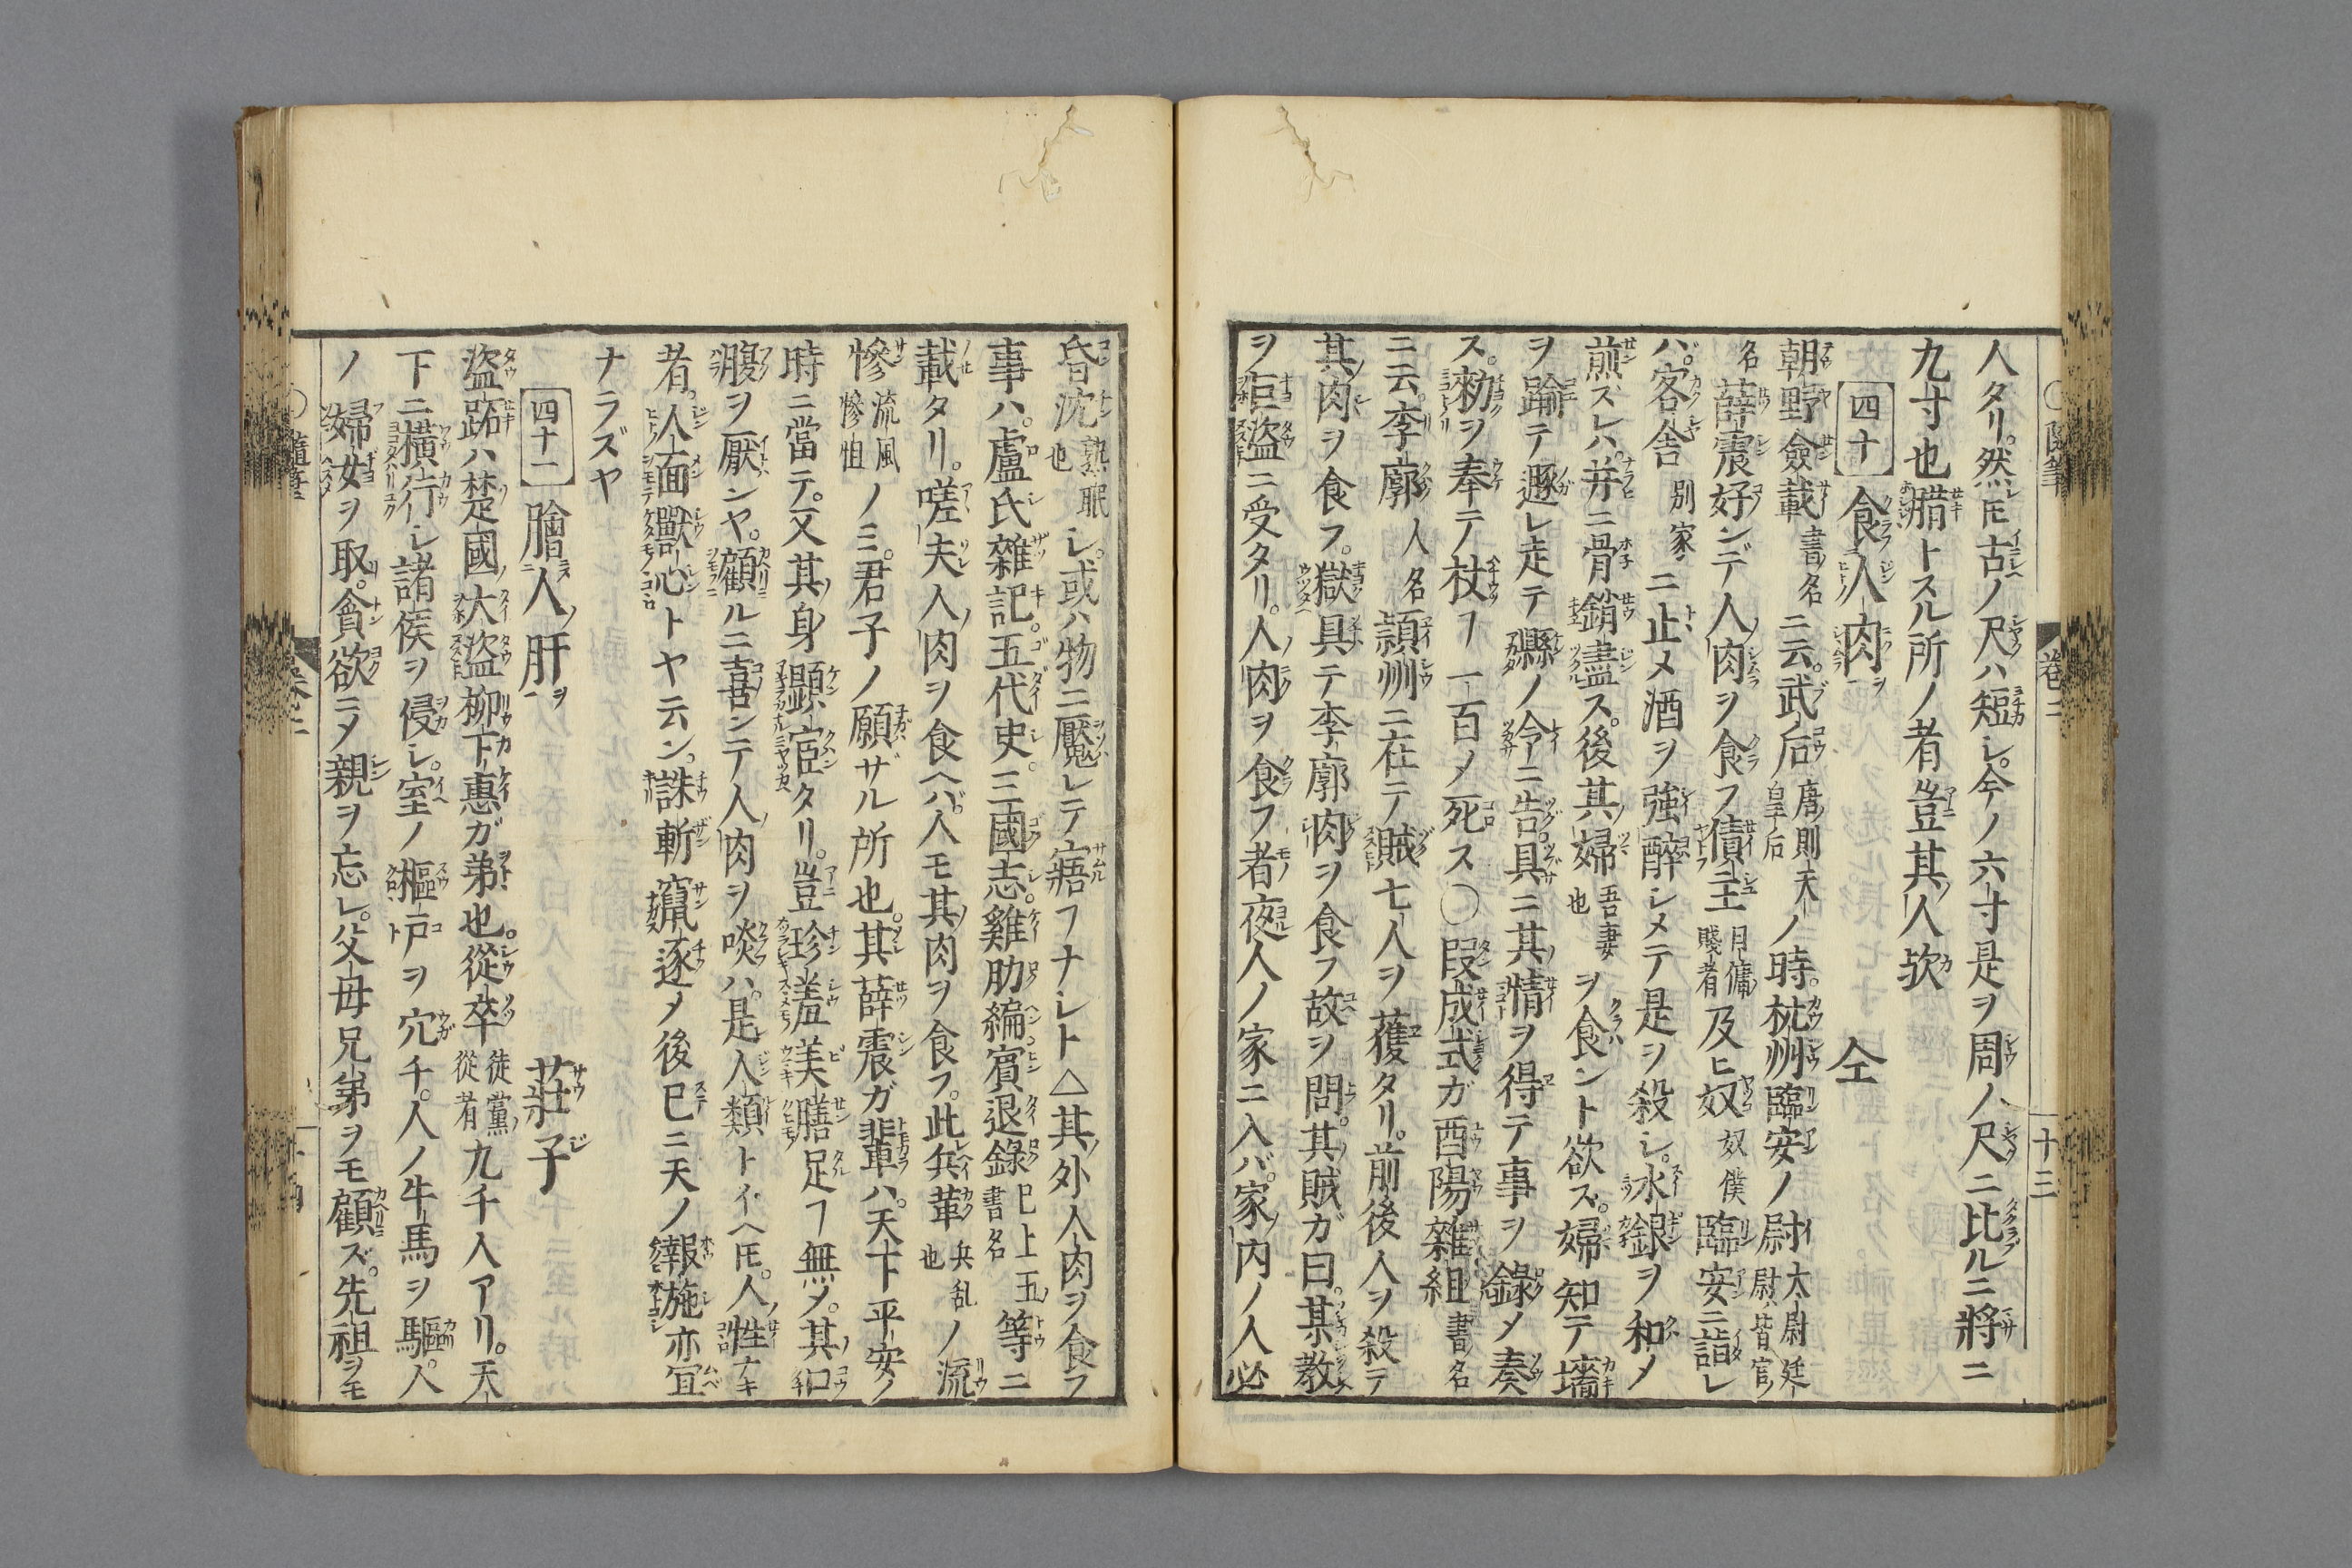 人タリ。然𪜈古ノ尺ハ短シ。今ノ六寸是ヲ周ノ尺ニ比ルニ將ニ
九寸也腊トスル所ノ者豈其人欤
四十 食人肉 仝
朝野僉載書名ニ云。武后唐則天皇后ノ時。杭州臨安ノ尉太尉廷尉皆官
名薛震好ンデ人肉ヲ食フ債主月傭賤者及ヒ奴奴僕臨安ニ詣レ
バ。客舎別家ニ止メ酒ヲ強醉シメテ是ヲ殺シ。水銀ヲ和メ
煎スレハ。并ニ骨銷盡ス。後其婦吾妻也ヲ食ント欲ズ。婦知テ墻
ヲ踰テ遯レ走テ縣ノ令ニ告。具ニ其情ヲ得テ事ヲ錄メ奏
ス。勑ヲ奉テ杖ヿ一百メ死ス〇段成式ガ酉陽雜組書名
ニ云。李廓人名頴州ニ在テ賊七人ヲ獲タリ。前後人ヲ殺テ
其肉ヲ食フ。獄具テ李廓肉ヲ食フ故ヲ問。其賊ガ曰。某教
ヲ巨盜ニ受タリ。人肉ヲ食フ者夜人ノ家ニ入バ。家内ノ人必
昏沈熟眠也シ。或ハ物ニ魘レテ寤ヿナレト△其外人肉ヲ食フ
事ハ。盧氏雜記。五代史。三國志。雞肋編。賓退錄已上五書名等ニ
載タリ。嗟夫人肉ヲ食ヘバ。人モ其肉ヲ食フ。此兵革兵乱也ノ流
慘流風慘怛ノミ。君子ノ願ザル所也。其薛震ガ輩ハ。天下平安ノ
時ニ當テ。又其身顯宦タリ。豈珍羞美膳足ヿ無メ。其口
腹ヲ厭ンヤ。顧ルニ喜ンテ人肉ヲ啖ハ。是人類トイヘ𪜈。人性ナキ
者。人面獸心トヤ云ン。誅斬竄逐メ後已ニ天ノ報施亦宜
ナラズヤ
四十一 膾人肝ヲ 莊子
盜跖ハ楚國ノ大盜柳下惠ガ弟也。從卒徒黨ノ從者九千人アリ。天
下ニ横行シ諸侯ヲ侵シ。室ノ樞戸ヲ穴チ。人ノ牛馬ヲ驅。人
ノ婦女ヲ取。貪欲ニメ親ヲ忘レ。父母兄弟ヲモ顧ズ。先祖ヲモ
〇隨筆 卷二 十三
〇隨筆 卷二